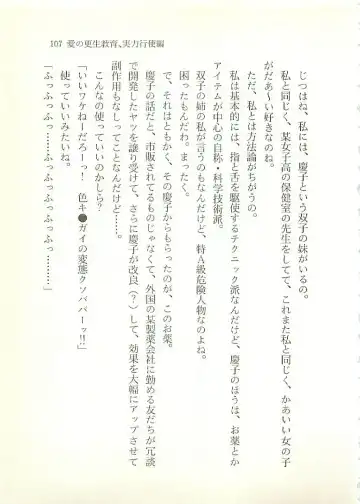 107 愛の更生教育、実力行使編
じつはね、私には、慶子という双子の妹がいるの。
私と同じく、某女子高の保健室の先生をしてて、これまた私と同じく、かあいい女の子
がだあ〜い好きなのね。
ただ、私とは方法論がちがうの。
私は基本的には、指と舌を駆使するテクニック派なんだけど、慶子のほうは、お薬とか
アイテムが中心の自称・科学技術派。
双子の姉の私が言うのもなんだけど、特A級危険人物なのよね。
困ったもんだわ。まったく。
で、それはともかく、その慶子からもらったのが、このお薬。
慶子の話だと、市販されてるものじゃなくて、外国の某製薬会社に勤める友だちが冗談
で開発したヤツを譲り受けて、さらに慶子が改良（？）して、効果を大幅にアップさせて
副作用もなしってことなんだけど……。
こんなの使っていいのかしら？
「いいワケねーだろーっ！　色キ●ガイの変態クソババーッ!!」
使っていいみたいね。
「ふっふっふっ……ふっふっふっふっふっ………」